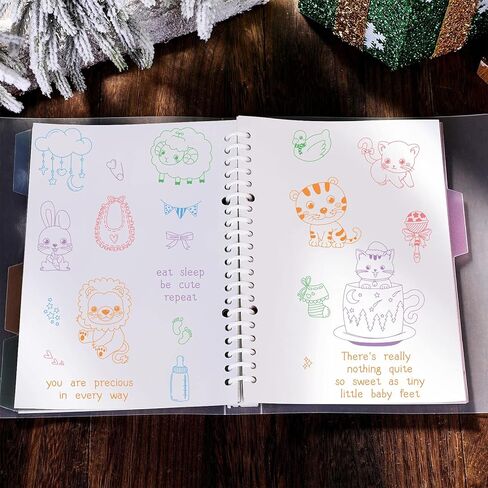 eat sleep
be cute
repeat
you are precious
in every way
There's really
nothing quite
so sweet as tiny
little baby feet